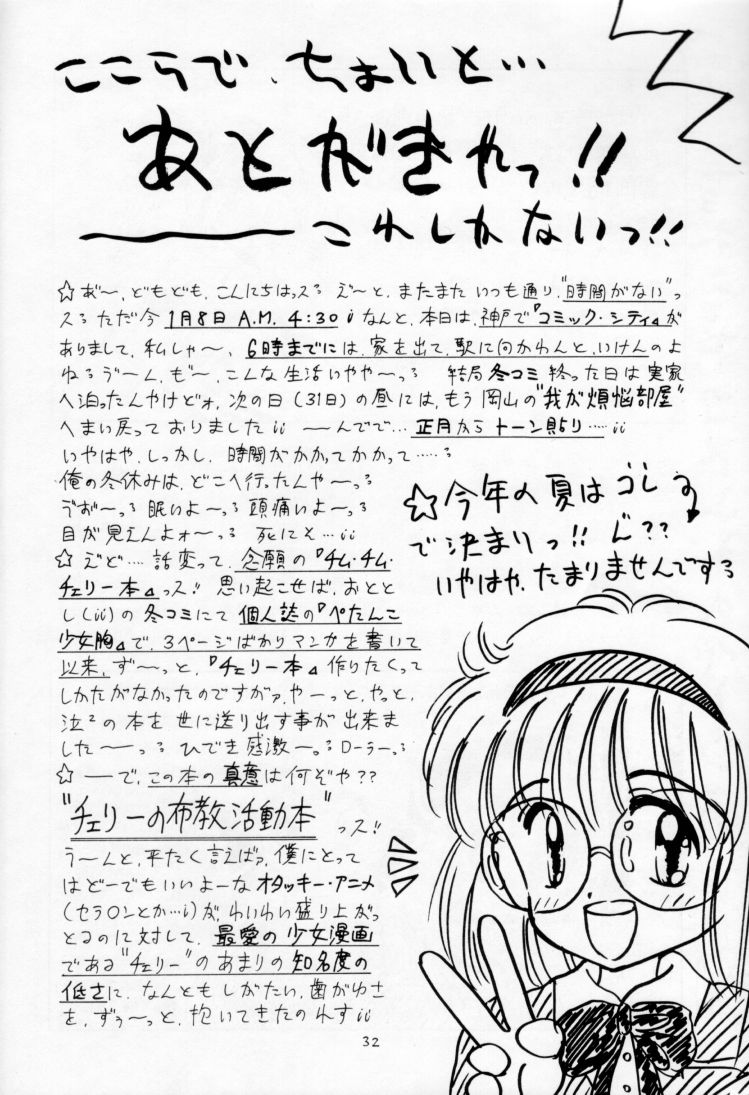 ここらで、ちょいと…
あとがきやっ!!
これしかないっ!!
☆あ゛〜、どもども、こんにちはっス。 え゛〜と、またまた いつも通り、"時間がない"っ
ス。 ただ今 1月8日 A.M. 4:30 ; なんと、本日は、神戸で『コミック・シティ』が
ありまして、私しゃ〜、 6時までには、家を出て、駅に向かわんと、いけんのよ
ねぇ う゛〜ん、も゛〜、こんな生活いやや〜っ。 結局 冬コミ 終った日は 実家
へ泊ったんやけどォ、次の日(31日)の昼には、もう 岡山の"我が煩悩部屋"
へまい戻って おりました ;; ー〜んでで… 正月から トーン貼り…… ;;
いやはや、しっかし、時間がかかってかかって……。
俺の冬休みは、どこへ行ったんや〜っ。
う゛お゛〜っ。 眠いよ〜っ。 頭痛いよ〜っ。
目が見えんよォ〜っ。 死にそ…;;
☆今年の夏は コレ
で決まりっ!! ど??
いやはや、たまりませんです。
☆え゛ど… 話変って、念願の『チム・チム・
チェリー本』っス!! 思い起こせば、おとと
し(;;)の 冬コミにて 個人誌の『ぺたんこ
少女胸』で、3ページばかりマンガを書いて
以来、ず〜っと、『チェリー本』作りたくって
しかたがなかったのですがァ、やーっと、やっと、
泣²の 本を 世に送り出す事が 出来ま
した〜ーっ。 ひでき 感激〜。 ローラー。
☆ ーで、この本の真意は何ぞや??
"チェリーの布教活動本"っス!!
う〜んと、平たく言えばァ、僕にとって
はどーでもいいよーな オタッキー・アニメ
(セラ○ンとか…;)が、わいわい盛り上がっ
とるのに対して、最愛の少女漫画
である"チェリー"の あまりの知名度の
低さに、なんとも しがたい、歯がゆさ
を、ずぅ〜っと、抱いてきたのれす ;;
32